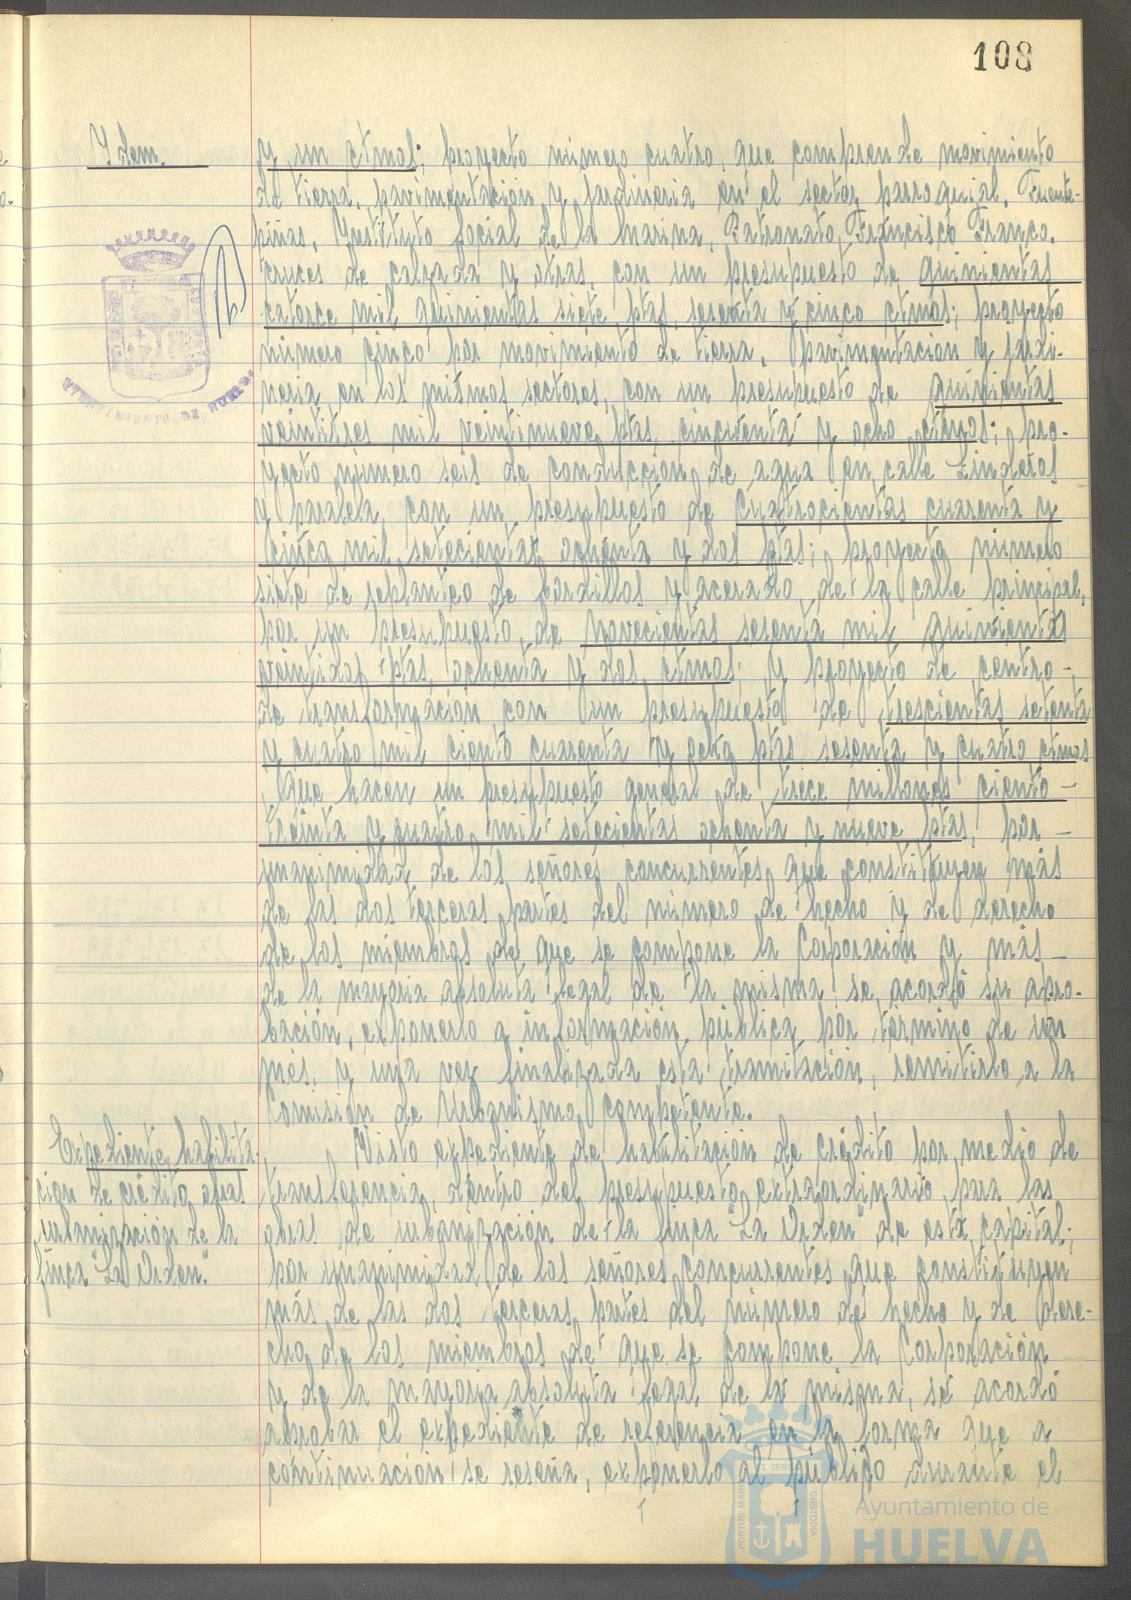 108
Idem.
y un ctmos; proyecto número cuatro, que comprende movimiento
de tierra, pavimentación y jardineria en el sector parroquial, Fuente-
piñas, Instituto Social de la Marina, Patronato Francisco Franco.
cruces de calzada y otras, con un presupuesto de quinientas
catorce mil quinientas siete ptas. sesenta y cinco ctmos; proyecto
número cinco por movimiento de tierra, pavimentación y jardi-
neria en los mismos sectores, con un presupuesto de quinientas
veintitres mil veintinueve ptas, cincuenta y ocho ctmos; pro-
yecto número seis de conducción de agua en calle Linderos
y paralela, con un presupuesto de cuatrocientas cuarenta y
cinco mil setecientas ochenta y dos ptas; proyecto número
siete de replanteo de bordillos y acerado, de la calle principal,
por un presupuesto, de novecientas sesenta mil quinientas
veintidos ptas, ochenta y dos ctmos; y proyecto de centro-
de transformación con un presupuesto de trescientas setenta
y cuatro mil ciento cuarenta y ptas sesenta y cuatro ctmos
Que hacen un presupuesto general de trece millones ciento-
treinta y cuatro mil setecientas ochenta y nueve ptas, por-
unanimidad de los señores concurrentes que constituyen más
de las dos terceras partes del número de hecho y de derecho
de los miembros de que se compone la Corporación y más-
de la mayoria absoluta legal de la misma se, acordó su apro-
bación, exponerlo a información pública por término de un
mes, y una vez finalizada esta tramitación, remitirlo a la
Comisión de Urbanismo competente.
Expediente habilita-
ción de crédito obras
urbanización de la
finca "La Orden".
Visto expediente de habilitación de crédito por medio de
transferencia, dentro del presupuesto extraordinario para las
obras de urbanización de la finca "La Orden" de esta capital;
por unanimidad de los señores concurrentes que constituyen
más de las dos terceras partes del número de hecho y de dere-
cho de los miembros de que se compone la Corporación
y de la mayoria absoluta legal de la misma, se acordó
aprobar el expediente de referencia en la forma que a
continuación se reseña, exponerlo al público durante el
AYUNTAMIENTO DE HUELVA
PORTUS MARIS ET TERRAE CUSTODIA
Ayuntamiento de
HUELVA